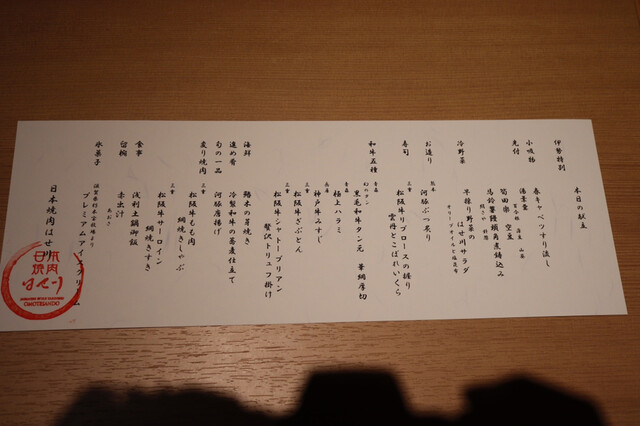 本日の献立
伊勢特別
小吸物
春キャベツすり流し
先付
湯葉豊
空豆
筍田楽
馬鈴薯饅頭角煮鋳込み
冷野菜
早採り野菜のはせ川サラダ
オリーブオイルと塩昆布
お造り
熊本
河豚ぶつ炙り
寿司
三重
松阪牛リブロースの握り
雲丹とこぼれいくら
和牛五種
青森
幻のタン
黒毛和牛タン元 華網厚切
青森
極上ハラミ
兵庫
神戸牛みすじ
三重
松阪牛ざぶとん
三重
松阪牛シャトーブリアン
贅沢トリュフ掛け
海鮮
鰆木の芽焼き
進め肴
冷製和牛の蕎麦仕立て
旬の一品
河豚唐揚げ
炙り焼肉
三重
松阪牛もも肉
網焼きしゃぶ
三重
松阪牛サーロイン
網焼きすき
食事
浅利土鍋御飯
留椀
赤出汁
あおさ
氷菓子
プレミアムアイスクリーム
日本焼肉はせ川
日本
焼肉
はせ川
OMOTESANDO